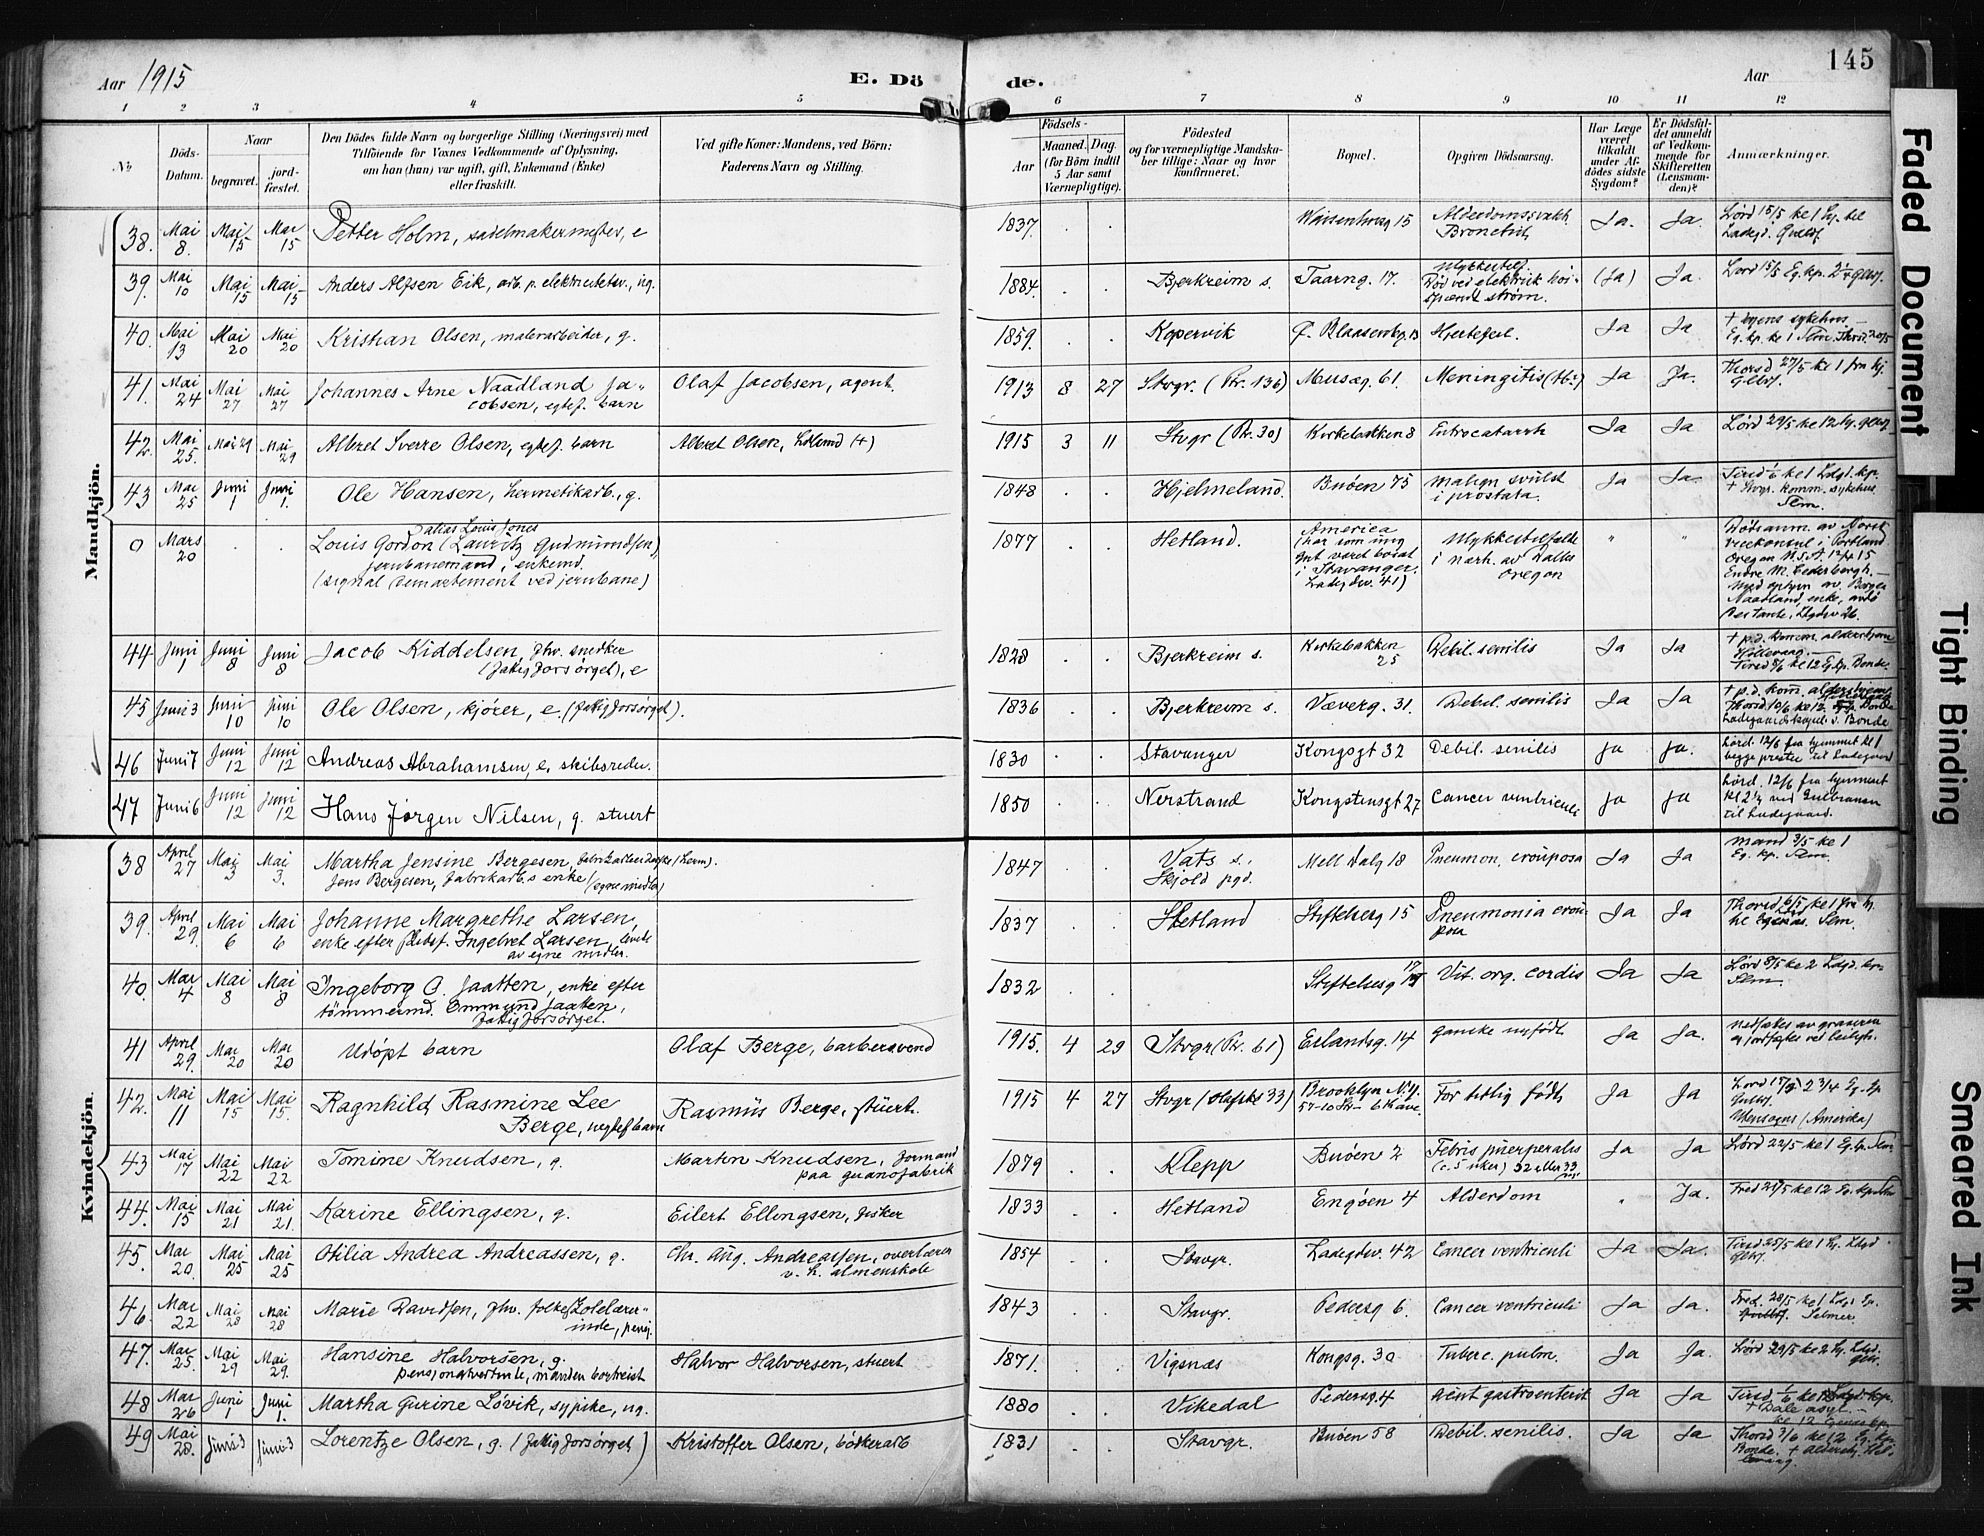 145
Aar 1915 E. Dö de. Aar
1 2 3 4 5 6 7 8 9 10 11 12
Nr.
Döds-Datum.
Naar
begravet.
jord-fæstet.
Den Dödes fulde Navn og borgerlige Stilling (Næringsvei) med
Tilföiende for Voxnes Vedkommende af Oplysning,
om han (hun) var ugift, gift, Enkemand (Enke)
eller fraskilt.
Ved gifte Koner: Mandens, ved Börn:
Faderens Navn og Stilling.
Födsels-
Aar
Maaned. Dag.
(for Börn indtil
5 Aar samt
Værnepligtige).
Födested
og for værnepligtige Mandska-
ber tillige: Naar og hvor
konfirmeret.
Bopæl.
Opgiven Dödsaarsag.
Har Læge
været
tilkaldt
under Af-
dödes sidste
Sygdom?
Er Dödsfal-
det anmeldt
af Vedkom-
mende for
Skifteretten
(Lensman-
den)?
Anmærkninger.
Mandkjön.
38. Mai 8. Mai 15 Mai 15 Petter Holm, sadelmakermester, e 1837. Waisenhusg 15 Alderdomssvakh. Bronchit Ja. Ja. Lørd 15/5 kl 1
39. Mai 10 Mai 15 Mai 15 Anders Alfsen Eik, arb. p. elektricitetsv., ug. 1884. Bjerkreim s. Taarng. 17. Ulykkestilf. Død ved elektrisk høispændt strøm. (Ja) Ja. Lørd 15/5 Eg. kp.
40. Mai 13 Mai 20 Mai 20 Kristian Olsen, malerarbeider, g. 1859. Kopervik Ø. Blaasenbg. 13 Hjertefeil. Ja Ja + byens sykehus Eg. kp. kl 1
41. Mai 24 Mai 27 Mai 27 Johannes Arne Naadland Jacobsen, egtef. barn Olaf Jacobsen, agent. 1913 8 27 Stvgr. (Pr. 136) Musæg. 61. Meningitis (tbc) Ja Ja. Thorsd 27/5 kl 1 fra kj.
42. Mai 25. Mai 29 Mai 29 Albret Sverre Olsen, egtef. barn Albret Olsen, (+) 1915 3 11 Stvgr (Pr. 30) Kirkebakken 8 Entrocatarrh Ja Ja Lørd 29/5 kl 12
43 Mai 25 Juni 1 Juni 1. Ole Hansen, hermetikarb., g. 1848 Hjelmeland. Buøen 75 Malign svulst i prostata. Ja Ja Tirsd 1/6 kl 1 Ldgd. kp. + Stvgr. komm. sykehus
0 Mars 20 alias Louis Jones Louis Gordon (Lauritz Gudmundsen), jernbanemand, enkemd. (signal departement ved jernbane) 1877 Hetland. America (har som ung gut været bosat i Stavanger. Ladegdsv. 41) Ulykkestilfælde i nærh. av Dalles Oregon " " Dødsanm. av Norsk vicekonsul i Portland Oregon U.S.A 12/4 15 Endre M. Cederbergh.
44 Juni 1 Juni 8 Juni 8 Jacob Kiddelsen, fhv. snedker (fattigforsørget), e 1828 Bjerkreim s. Kirkebakken 25 Debil. senilis Ja Ja Hillevaag. Tirsd 8/6 kl 12 Eg. kp. Bonde
45 Juni 3 Juni 10 Juni 10 Ole Olsen, kjører, e. (fattigforsørget). 1836 Bjerkreim s. Væverg. 31. Debil. senilis Ja Ja Thorsd 10/6 kl 12 Bonde
46 Juni 7 Juni 12 Juni 12 Andreas Abrahamsen, e, skibsreder. 1830 Stavanger Kongsgt 32 Debil. senilis Ja Ja. Lørd. 12/6 fra hjemmet kl 1 begge prester til Ladegaard
47 Juni 6 Juni 12 Juni 12 Hans Jørgen Nilsen, g. stuert 1850 Nerstrand Kongstensgt 27 Cancer ventriculi Ja Ja Lørd. 12/6 fra hjemmet kl 2 1/2 ved Gulbransen til Ladegaard.
Kvindekjön.
38 April 27 Mai 3 Mai 3. Martha Jensine Bergesen, fabrikarbeiderske (herm). Jens Bergesen, fabrikarb.s enke (egne midler) 1847 Vats s. Skjold pgd. Mell Dalg 18 Pneumon. crouposa Ja Ja Mand 3/5 kl 1 Eg. kp.
39. April 29. Mai 6 Mai 6 Johanne Margrethe Larsen, enke efter Ingebret Larsen, levede av egne midler. 1837 Hetland Stiftelsesg 15 Pneumonia crouposa Ja Ja Thorsd 6/5 kl 1 fra
40. Mai 4 Mai 8 Mai 8 Ingeborg O. Jaatten, enke efter tømmermd. Ommund Jaatten, fattigforsørget. 1832 Stiftelsesg 17 Vit. org. cordis Ja Ja Lørd 8/5 kl 2 Ldgd. kp.
41 April 29. Mai 20 Mai 20 Udøpt barn Olaf Berge, barbersvend 1915. 4 29 Stvgr (Pr. 61) Erlandsg. 14 ganske nyfødt Ja Ja. Nedsættes av graveren og jordfæstes ved leilighet.
42. Mai 11 Mai 15 Mai 15. Ragnhild Rasmine Lee Berge, uegtef barn Rasmus Berge, stuert. 1915 4 27 Stvgr Brooklyn N.Y. 57-10 Str - 6th ave. For tidlig født Ja Ja (Amerika)
43 Mai 17 Mai 22 Mai 22 Tomine Knudsen, g. Marton Knudsen, formand paa guanofabrik 1879 Klepp Buøen 2 Febris puerperalis (c. 5 uker) Ja Ja Lørd 22/5 kl 1 Eg. kp.
44. Mai 15 Mai 21 Mai 21. Karine Ellingsen, g. Eilert Ellingsen, fisker 1833 Hetland Engøen 4 Alderdom " Ja. Fred 21/5 kl 12 Eg. kp.
45. Mai 20. Mai 25 Mai 25 Otilia Andrea Andreassen, g. Chr. Aug. Andreassen, overlærer v. h. almenskole 1854 Stavgr. Ladegdsv. 42 Cancer ventriculi Ja Ja. Tirsd 25/5 kl 1
46 Mai 22 Mai 28 Mai 28 Marie Davidsen, fhv. folkeskolelærerinde, pensj. 1843 Stavgr. Pedersg 6. Cancer ventriculi Ja Ja. Fred. 28/5 kl 1 Ldgd. kp. Selmer
47. Mai 25. Mai 29 Mai 29. Hansine Halvorsen, g. pensjonatvertinde, manden bortreist Halvor Halvorsen, stuert 1871. Vigsnæs Kongsg. 30 Tuberc. pulm. Ja Ja. Lørd 29/5 kl 2
48 Mai 26 Juni 1 Juni 1. Martha Gurine Løvik, sypike, ug. 1880 Vikedal Pedersg. 4 Acut gastroenterit Ja Ja Tirsd. 1/6 + Dale asyl.
49 Mai 28. Juni 3 Juni 3 Lorentze Olsen, g. (fattigforsørget) Kristoffer Olsen, bødkerarb 1831 Stavgr. Buøen 58 Debil. senilis. Ja Ja Thorsd 3/6 kl 12 Eg. kp. Bonde.
Faded Document
Tight Binding
Smeared Ink